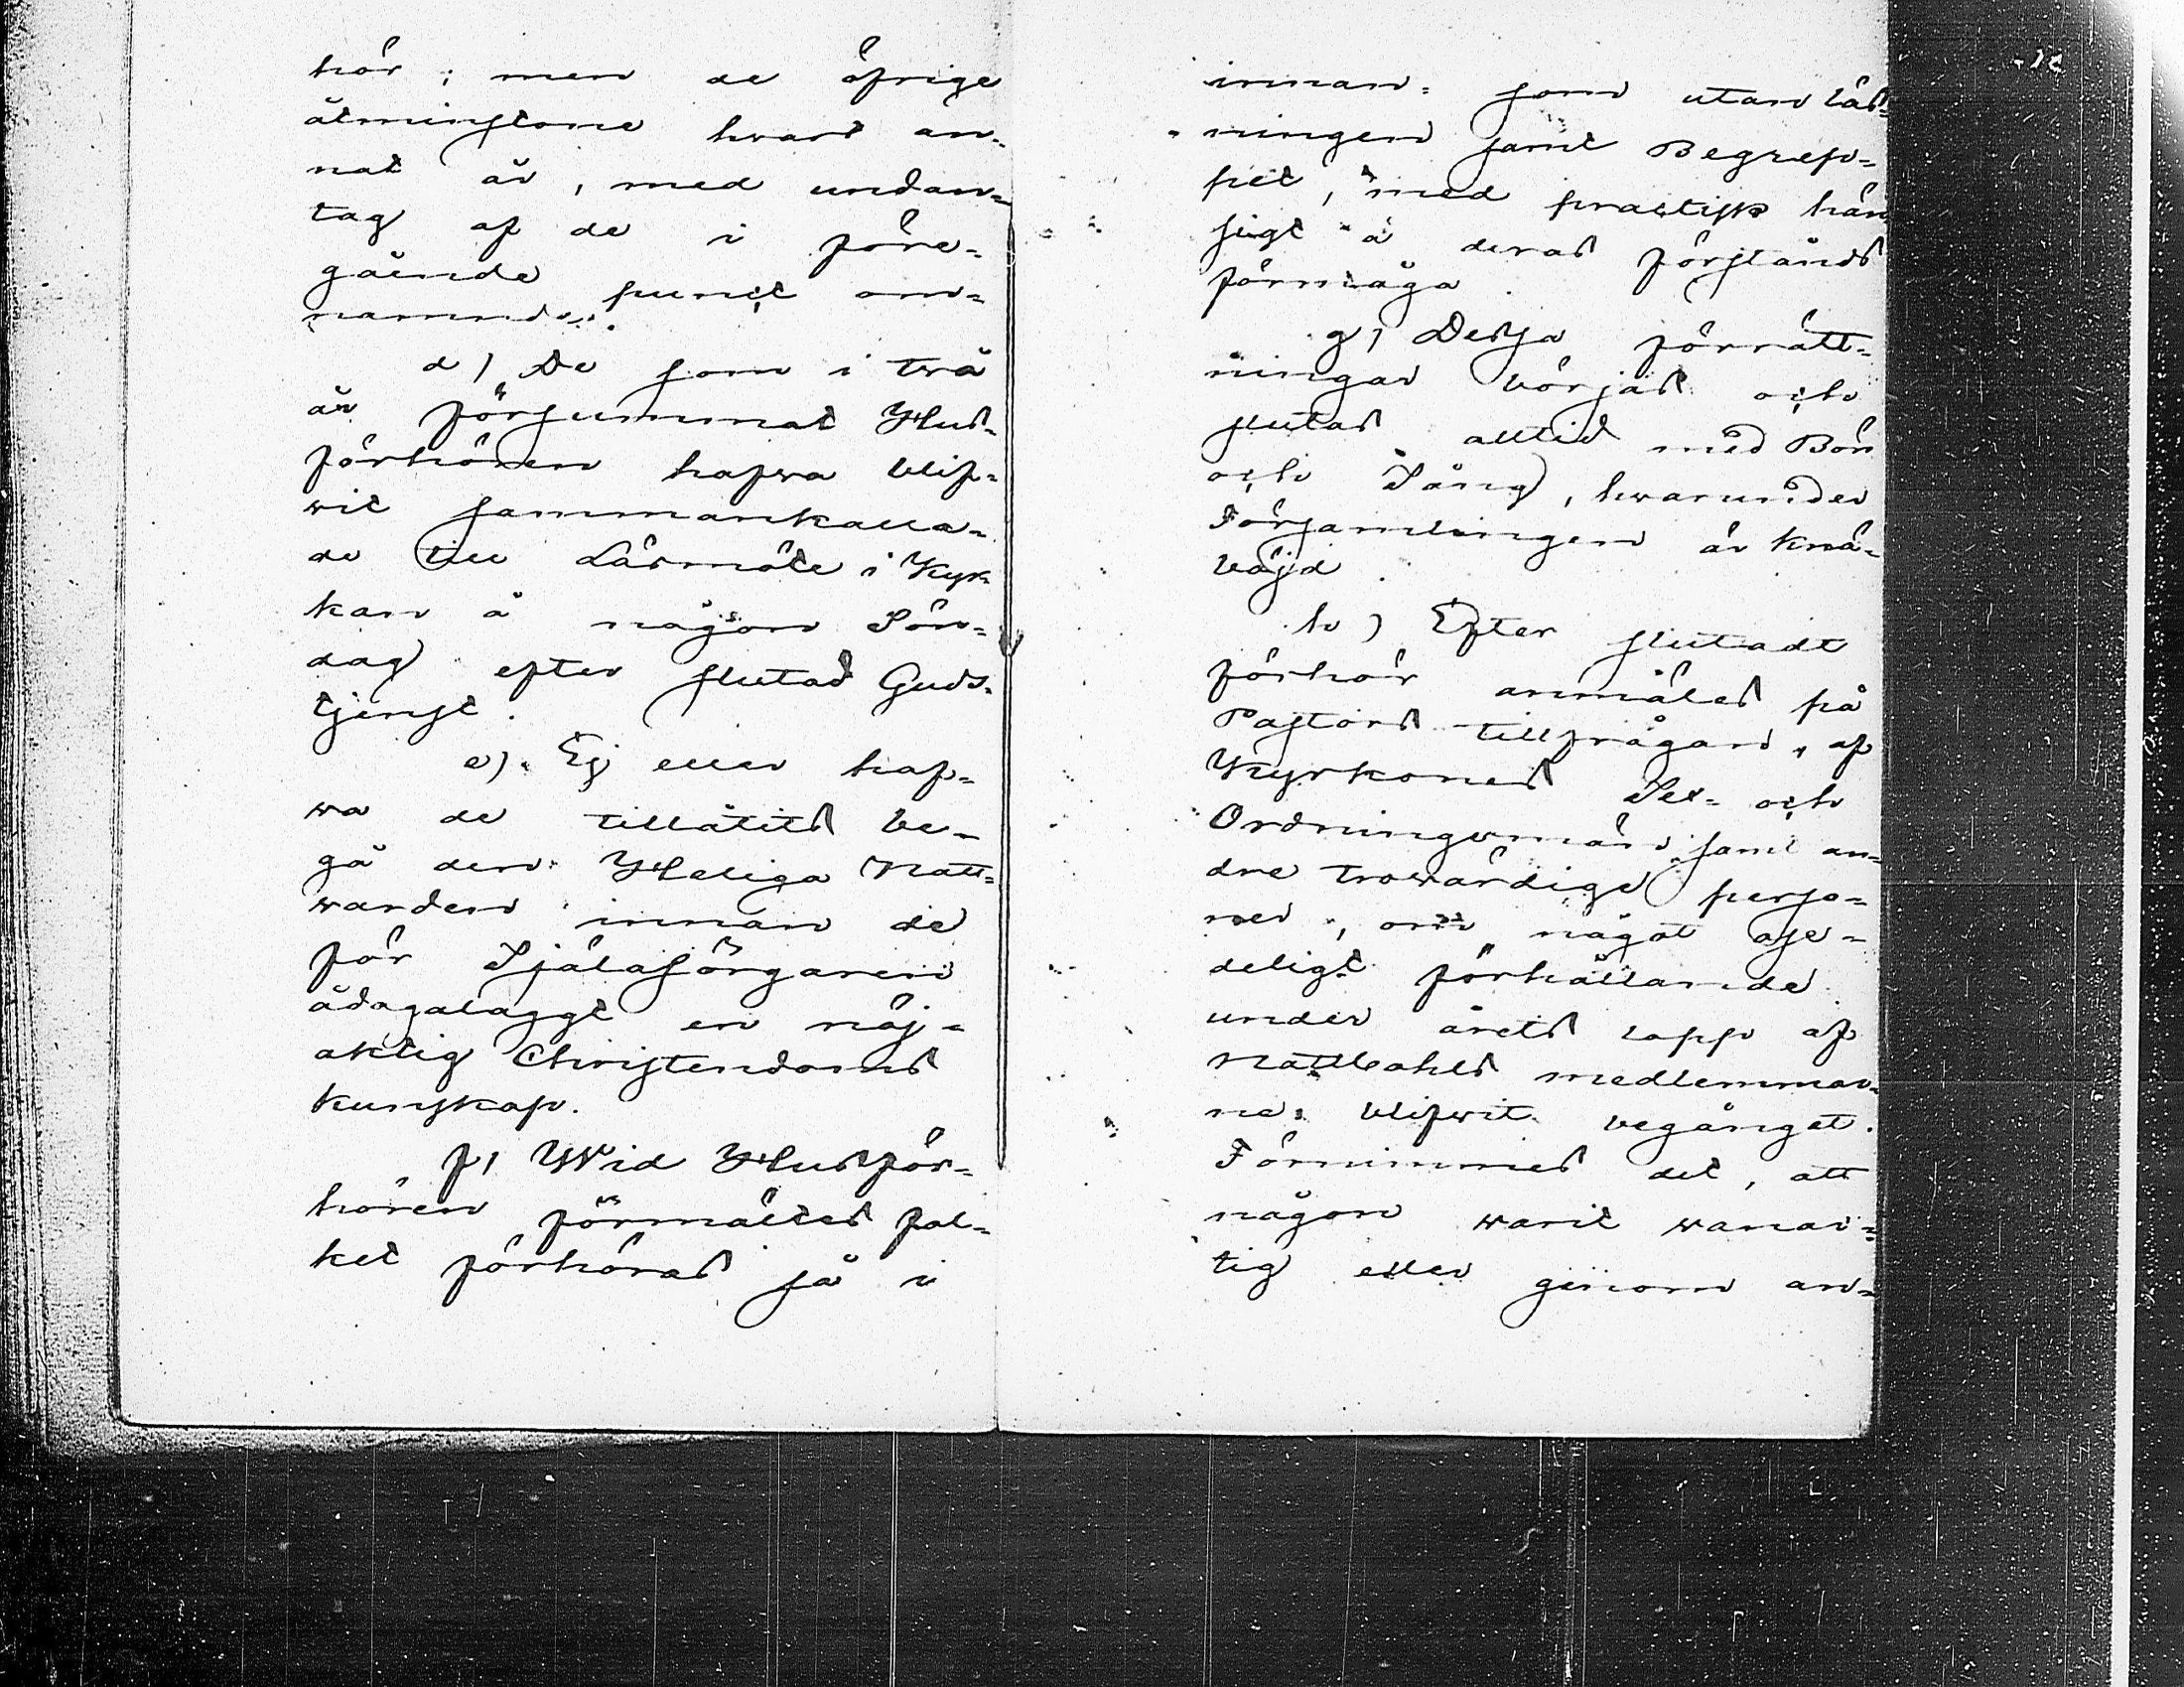 hör; men de öfrige
åtminstone hvart an-
nat år, med undan-
tag af de i före-
gående punct om-
namnde.
d) De som i två
år försummat Hus-
förhören hafva blif-
vit sammankalla-
de till Lärmöte i Kyr-
kan å någon Sön-
dag efter slutad Guds-
tjenst.
e). Ej eller haf-
va de tillåtits be-
gå den Heliga Natt-
varden innan de
för Själasörgaren
ådagalaggt en nöj-
aktig Christendoms
kunskap.
f) Wid Husför-
hören förmältes fol-
ket förhöras så i
innan- som utan läs-
ningen samt Begrep-
pet, med practisk hän
sigt å deras förstånds
förmåga.
g) Dessa förrätt-
ningar börjas och
slutas alltid med Bön
och Sång, hvarunder
Församlingen är knä-
böjd.
h) Efter slutadt
förhör anmäles på
Pastors tillfrågan, af
Kyrkones Sex- och
Ordningsmän samt an-
dre trovärdige perso-
ner, om något ose-
deligt förhållande
under årets lopp af
Nattvahls medlemmar-
ne blifvit begånget.
Förnimmes det, att
någon varit vanar-
tig eller genom an-